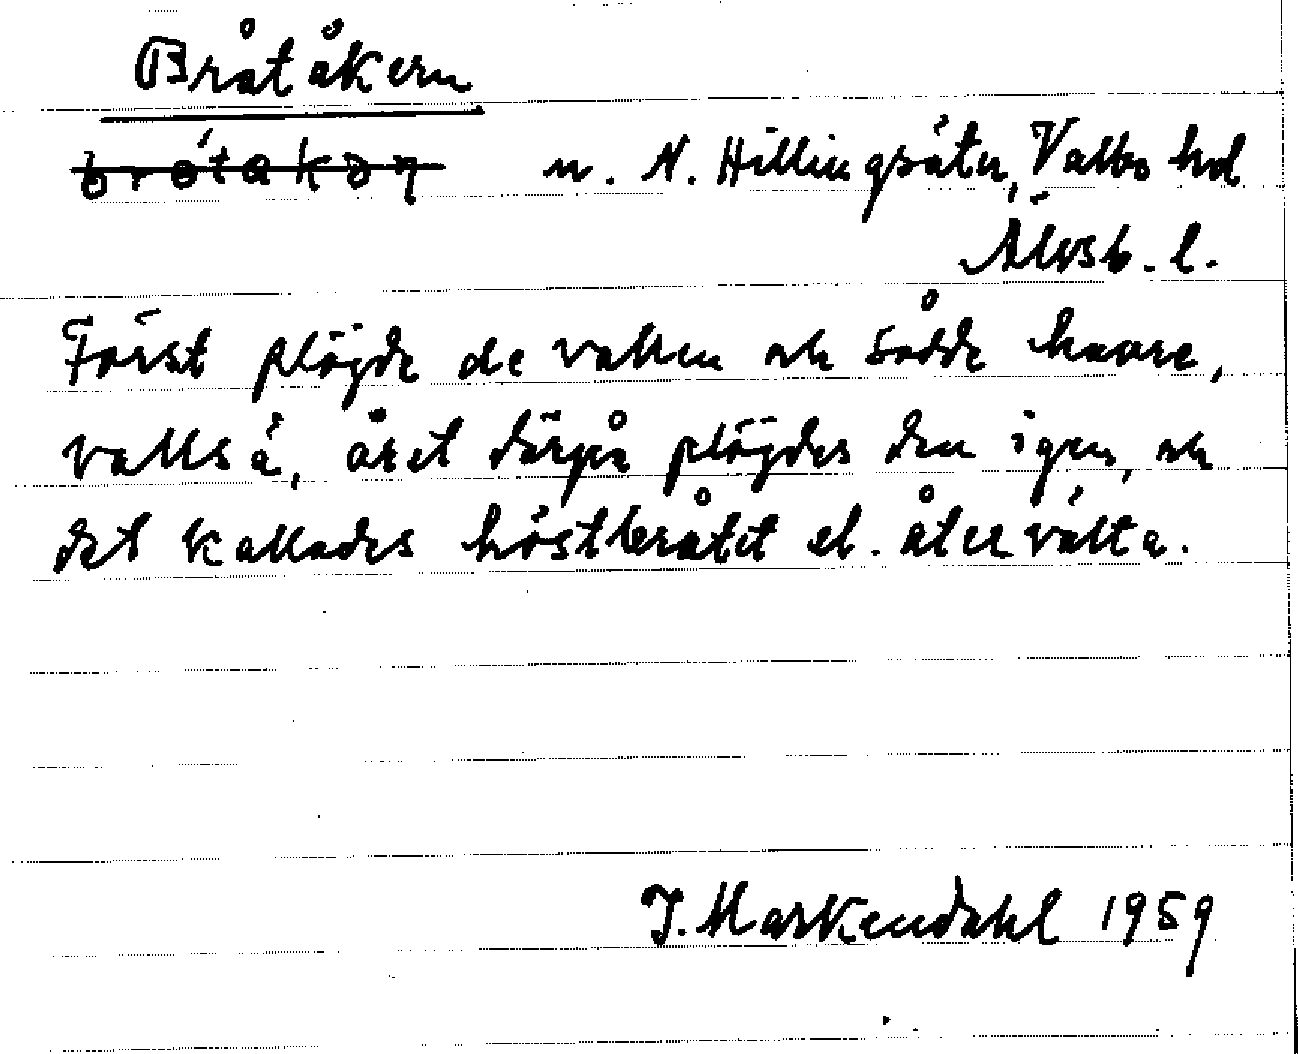 Bråtåkern
brǿtakəɳ n. N. Hillingsäter, Valbo hd
Älvsb. l.
Först plöjde de vallen och sådde havre,
valls å, året därpå plöjdes den igen, och
det kallades höstbråtet el. återvälta.
J. Markendahl 1959